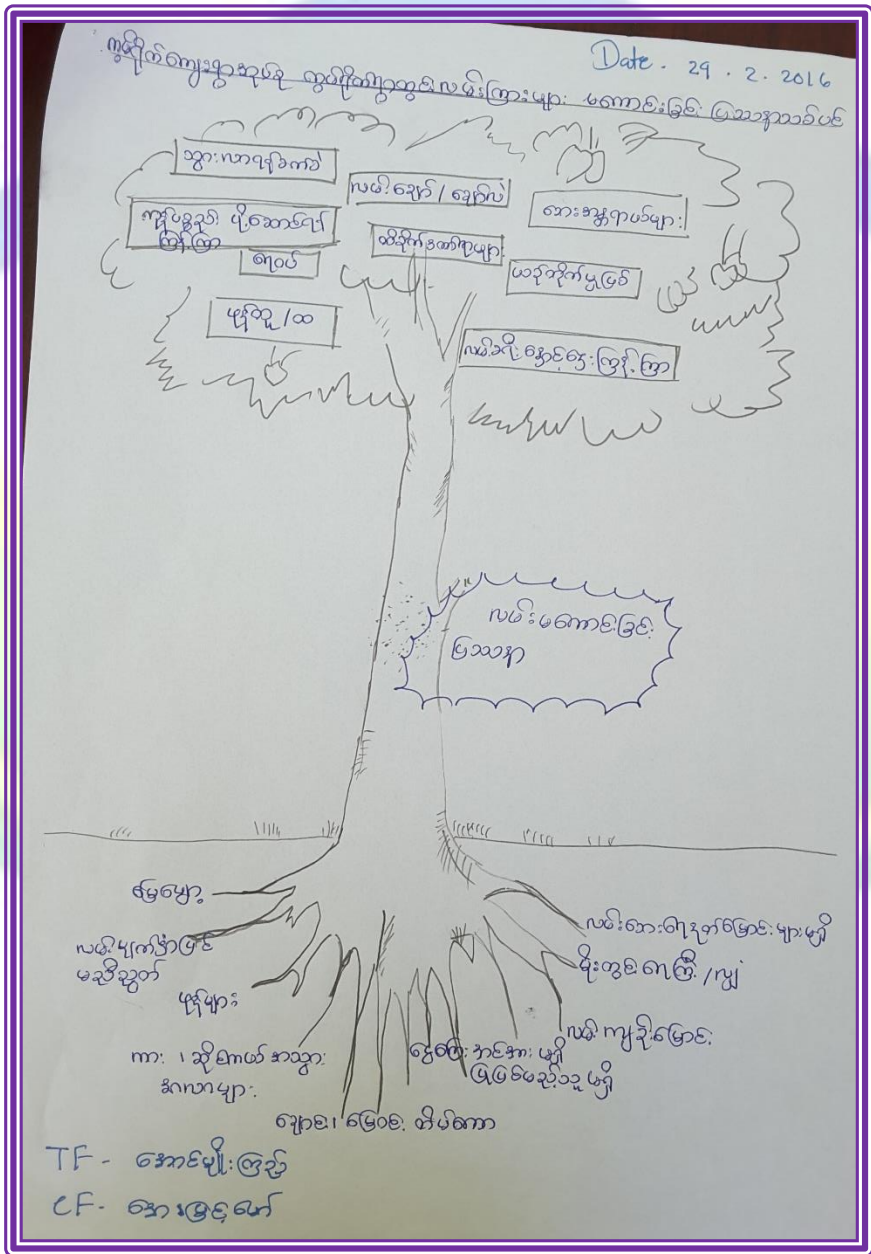 Date. 29. 2. 2016
ကွပ်ရိုက်ကျေးရွာအုပ်စု ကွပ်ရိုက်ရွာတွင်းလမ်းကြားများ မကောင်းခြင်း ပြဿနာသစ်ပင်
သွားလာရန်ခက်ခဲ
လမ်းချော်/ချော်လဲ
ဘေးအန္တရာယ်များ
ကုန်ပစ္စည်း ပို့ဆောင်ရန်
ကြန့်ကြာ
ထိခိုက်ဒဏ်ရာများ
ရေဝပ်
ယာဉ်တိုက်မှုဖြစ်
ဖုန်ထူ/ထ
လမ်းခရီးနှောင့်နှေးကြန့်ကြာ
လမ်းမကောင်းခြင်း
ပြဿနာ
မြေပျော့
လမ်းမျက်နှာပြင်
မညီညွတ်
ဖုန်များ
ကား၊ ဆိုင်ကယ် အသွား
အလာများ
ချောင်း၊ မြောင်း တိမ်ကော
ငွေကြေး အင်အား မရှိ
ပြုပြင်မည့်သူ မရှိ
လမ်းကျဉ်းမြောင်း
မိုးတွင်းရေကြီး/လျှံ
လမ်းဘေးရေနုတ်မြောင်းများမရှိ
TF- အောင်မျိုးကြည်
CF-